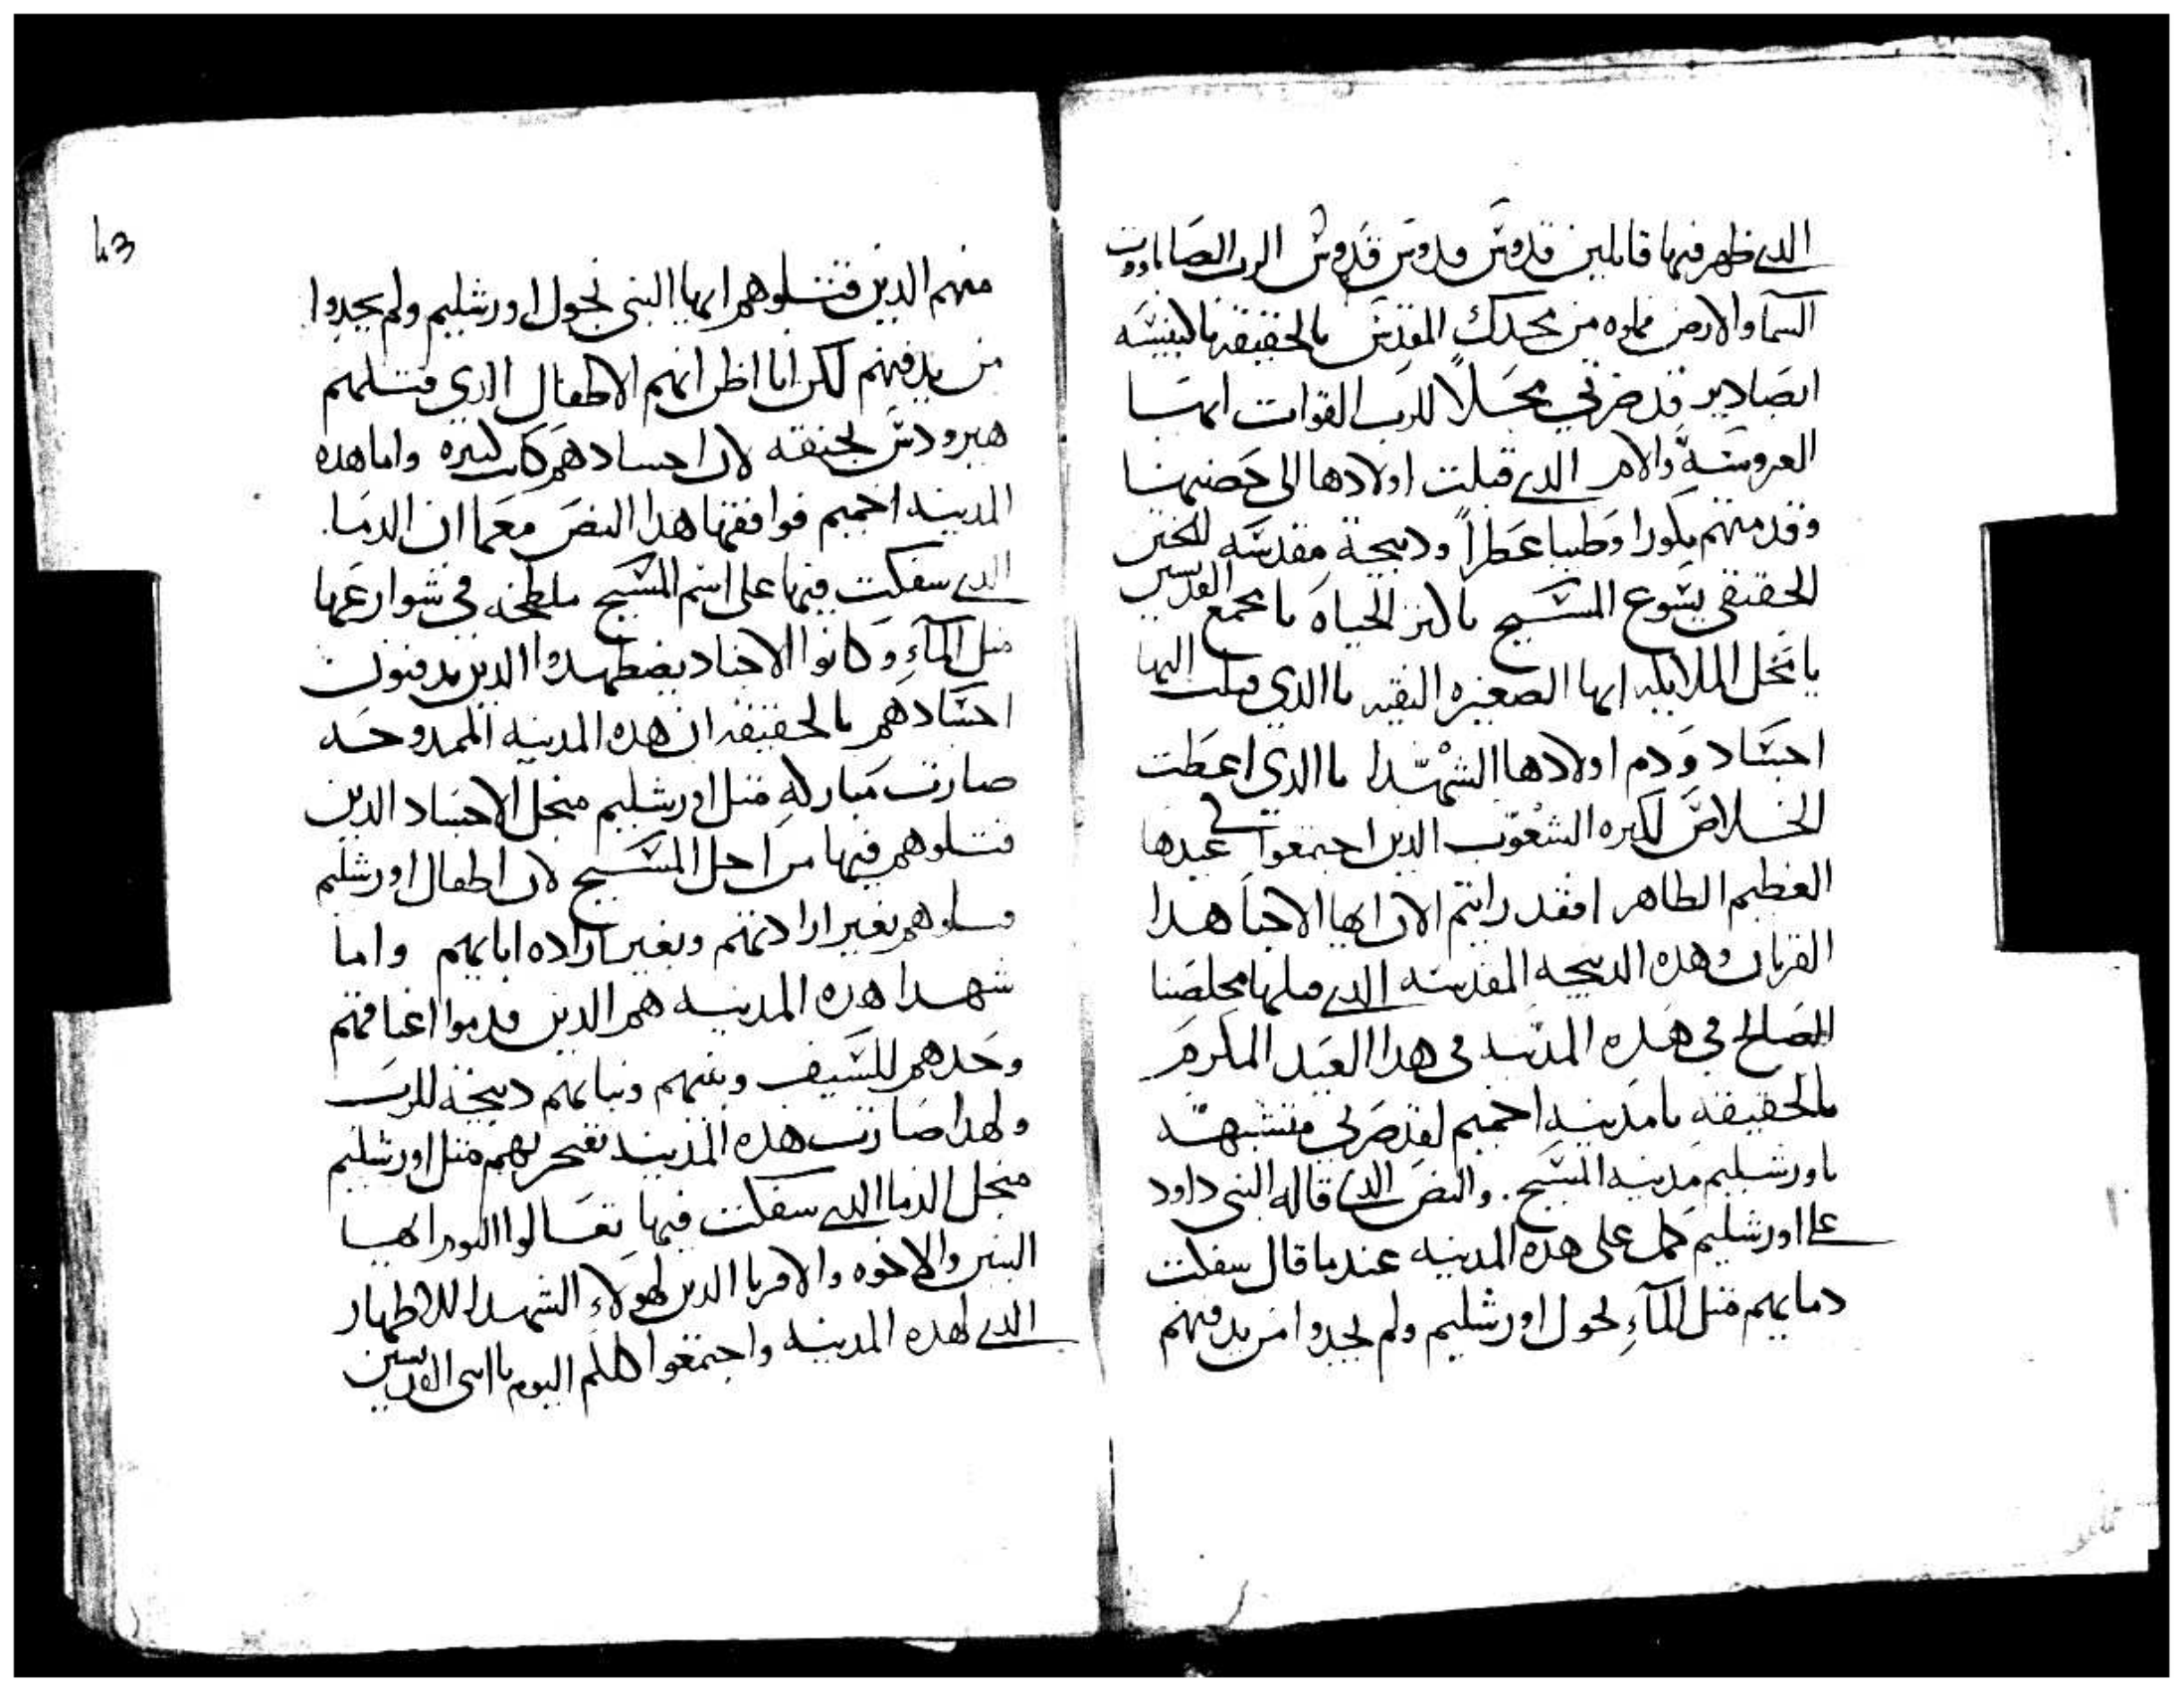 الدى ظهر فيها قايلين قدوس قدوس قدوس الرب الصاباووت
السما والارض مملوه من مجدك المقدس بالحقيقه يا كنيسه
ابصادير قد صرتي محلاً للرب القوات ايتها
العروسه والام الدى قبلت اولادها الى حضنها
وقدمتهم بكورا وطيبا عطراً ودبيحة مقدسه للختن
الحقيقي يسوع المسيح يا كنز الحياه يا مجمع القديسين
يا محل الملايكه ايها الصغيره النقيه يا الدي قبلت اليها
اجساد ودم اولادها الشهدا يا الدي اعطت
الخلاص لكتره الشعوب الدين اجتمعوا في عيدها
العظيم الطاهر افقد رايتم الان ايها الاحبا هدا
القربان وهده الدبيحه المقدسه الدى قبلها مخلصنا
الصالح في هده المدينه في هدا العيد المكرم
بالحقيقه يا مدينه احميم لقد صرتي متشبهه
باورشليم مدينه المسيح . والنص الدى قاله النبي داود
على اورشليم كمل على هده المدينه عندما قال سفكت
دمايهم متل المآءِ لحول اورشليم ولم يجدوا من يدفنهم
43
منهم الدين قتلوهم ايها النبي لحول اورشليم ولم يجدوا
من يدفنهم لكن انا اظن انهم الاطفال الدي قتلهم
هيرودس لحنقه لان اجسادهم كانت كتيره واما هده
المدينه احميم فوافقها هدا النص معما ان الدما
الدى سفكت فيها على اسم المسيح ملطخه في شوارعها
متل المآءِ وكانوا الاجناد يضطهدوا الدين يدفنون
اجسادهم بالحقيقه ان هده المدينه الممدوحه
صارت مباركه متل اورشليم منجل الاجساد الدين
قتلوهم فيها من اجل المسيح لان اطفال اورشليم
قتلوهم بغير ارادتهم وبغير اراده ابايهم واما
شهدا هده المدينه هم الدين قدموا اعناقهم
وحدهم للسيف وبنيهم وبناتهم دبيحة للرب
ولهدا صارت هده المدينه تفتخر بهم متل اورشليم
منجل الدما الدى سفكت فيها تعالوا اليوم ايها
البنين والاخوه والاقربا الدين لهولاءِ الشهدا الاطهار
الدى لهده المدينه واجتمعوا هلم اليوم يا ابنى القديسين